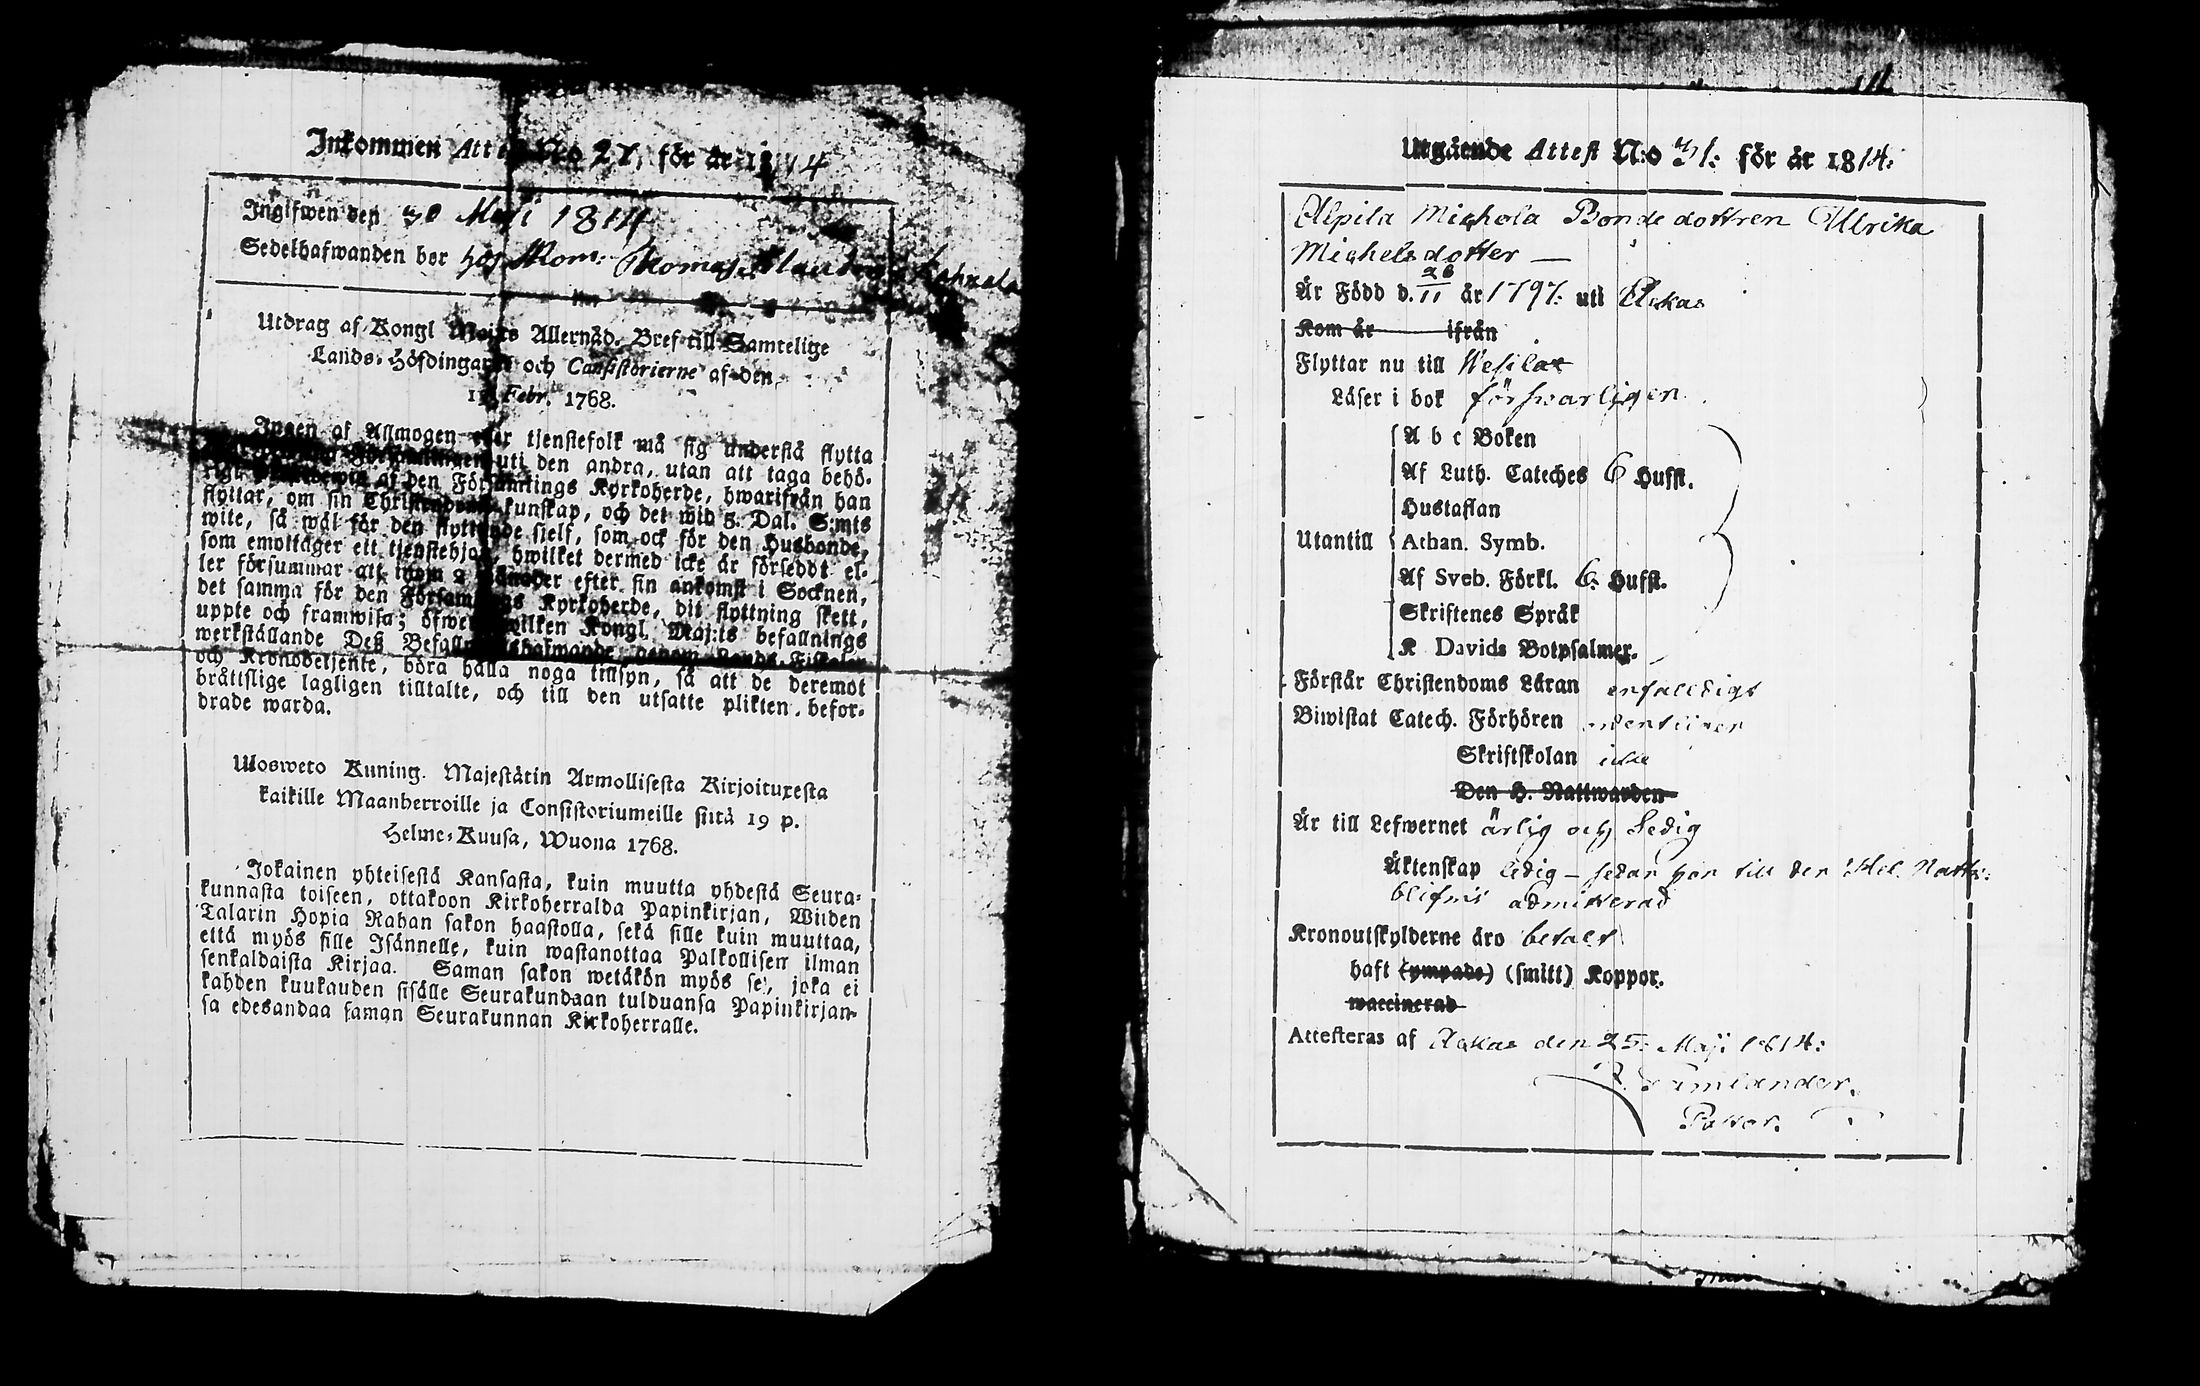 Inkommen Attest No 27, för år 1814
Ingifwen den 30 Maji 1814
Sedelhafwanden bor hos Rom: Thomas
Utdrag af Kongl Maj:ts Allernåd. Bref till Samtelige
Lands-Höfdingar och Consistorierne af den
Febr. 1768.
Ingen af Allmogen eller tjenstefolk må sig understå flytta
uti den andra, utan att taga behö-
af den Församlings Kyrkoherde, hwarifrån han
flyttar, om sin Christendoms kunskap, och det wid 5. Dal. S:mts
wite, så wäl för den flyttande sielf, som ock för den Husbonde,
som emottager ett tjenstehjon, hwilket dermed icke är förseddt el-
ler försummar att inom 2 månader efter sin ankomst i Socknen,
det samma för den Församlings Kyrkoherde, dit flyttning skett,
uppte och framwisa; öfwer hwilken Kongl. Maj:ts befallnings
werkställande Deß Befallningshafwande, genom Lands-Fiskaler
och Kronobetjente, böra hålla noga tillsyn, så att de deremot
bråttslige lagligen tilltalte, och till den utsatte plikten befor-
drade warda.
Ulosweto Kuning. Majestätin Armollisesta Kirjoituxesta
kaikille Maanherroille ja Consistoriumeille siitä 19 p.
Helme-Kuusa, Wuona 1768.
Jokainen yhteisestä Kansasta, kuin muutta yhdestä Seura-
kunnasta toiseen, ottakoon Kirkoherralda Papinkirjan, Wiiden
Talarin Hopia Rahan sakon haastolla, sekä sille kuin muuttaa,
että myös sille Isännelle, kuin wastanottaa Palkollisen ilman
senkaldaista Kirjaa. Saman sakon wetäkön myös se, joka ei
kahden kuukauden sisälle Seurakundaan tulduansa Papinkirjan-
sa edesandaa saman Seurakunnan Kirkoherralle.
Utgående Attest N:o 31: för år 1814:
Alpila Michola Bonde dottren Ullrika
Michelsdotter —
Är Född d. 26/11 år 1797: uti Ackas
Kom år ifrån
Flyttar nu till Wesilax
Läser i bok förswarligen
A b c Boken
Af Luth. Cateches 6 Hufst.
Hustaflan
Utantill Athan. Symb.
Af Sveb. Förkl. 6: Hufst.
Skriftenes Språk
K Davids Botpsalmer.
Förstår Christendoms Läran enfalldigt
Biwistat Catech. Förhören ordentligen
Skriftskolan icke
Den H. Nattwarden
Är till Lefwernet ärlig och Sedig
Äktenskap ledig – sedan hon till den Hel. Nattw:
blifwit admitterad
Kronoutskylderne äro betalt
haft (ympade) (smitt) Koppor.
waccinerad
Attesteras af Ackas den 25: Maji 1814:
Pastor.